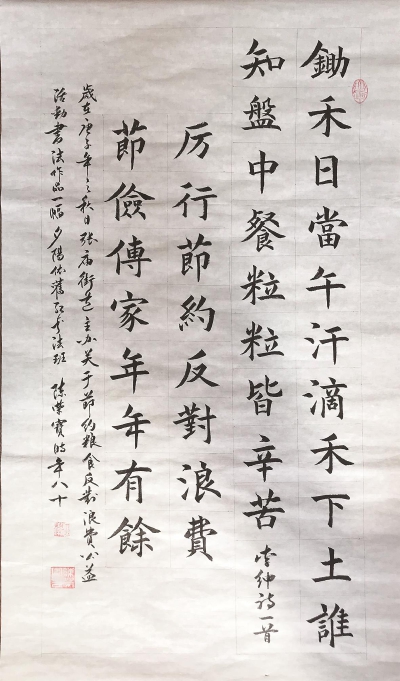 鋤禾日當午汗滴禾下土誰
知盤中餐粒粒皆辛苦 李紳詩一首
厉行節約反對浪費
節儉傳家年年有餘
歲在庚子年之秋日張庙街道主办关于節约粮食反對浪費公益
活動書法作品一幅 夕陽依舊红書法班 陈榮寶時年八十